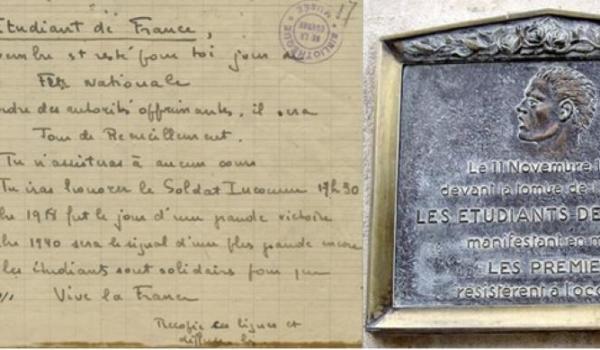 Etudiant de France,
vembre est resté pour toi jour de
Fête Nationale
ordre des autorités opprimantes, il sera
Jour de Recueillement.
Tu n'assisteras à aucun cours
Tu iras honorer le Soldat Inconnu 17h30
bre 1918 fut le jour d'une grande victoire
bre 1940 sera le signal d'une plus grande encore
les étudiants sont solidaires pour que
Vive la France
Recopie ces lignes et
diffuse les
BIBLIOTHÈQUE
MUSÉE
DE LA
GUERRE
Le 11 Novembre 1
devant la tombe de l
LES ETUDIANTS DE
manifestant en m
LES PREMIE
résistèrent à l'occ